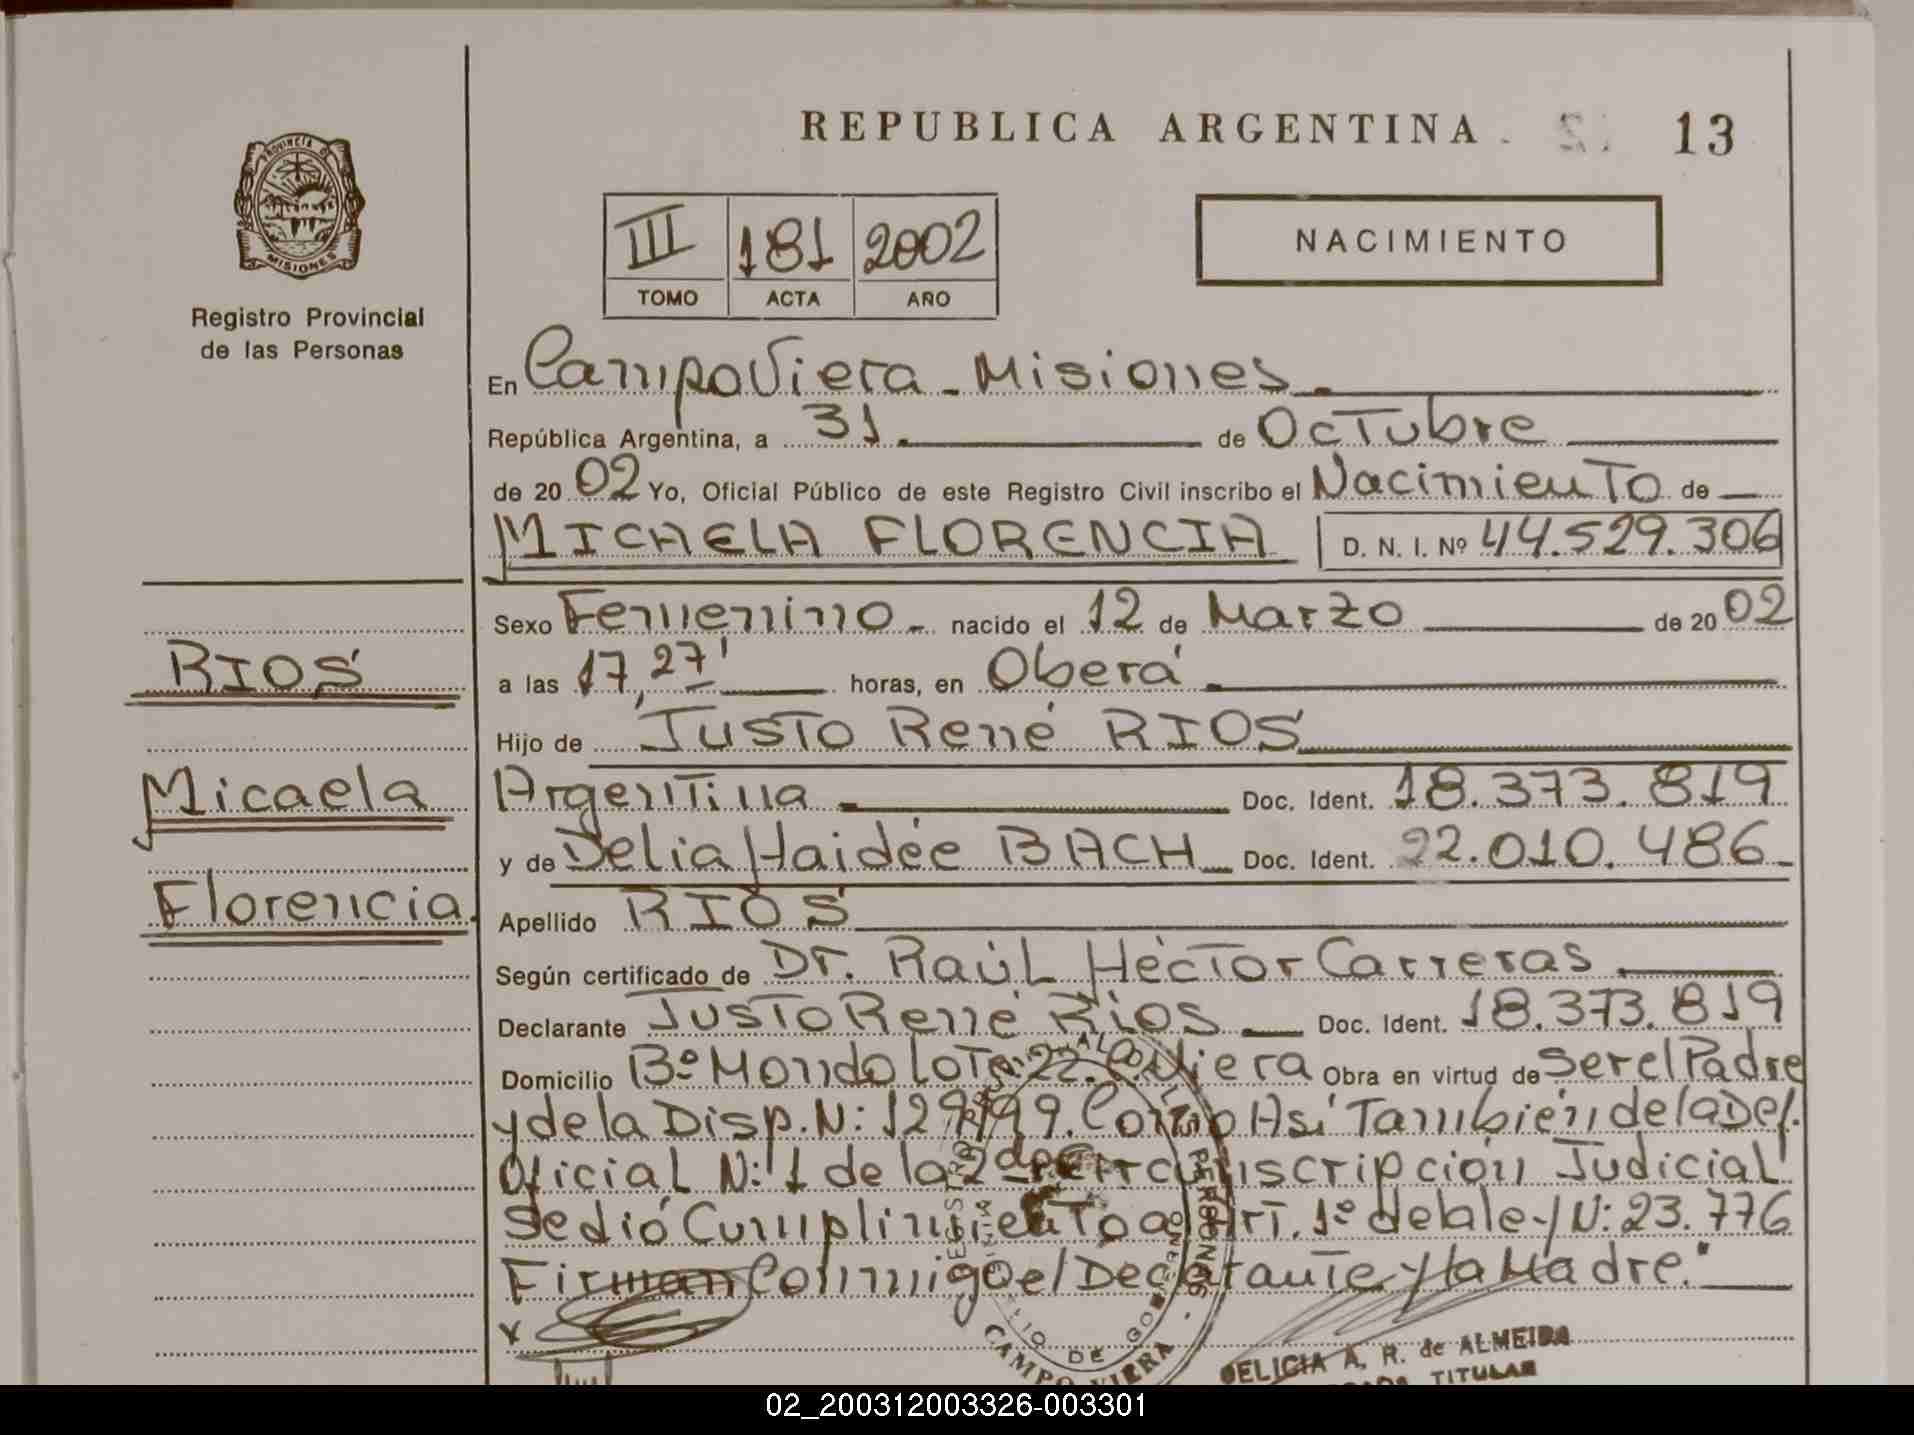 REPUBLICA ARGENTINA. 13
PROVINCIA D
MISIONES
Registro Provincial
de las Personas
III 181 2002
TOMO ACTA AÑO
NACIMIENTO
En Campo Viera - Misiones.
República Argentina, a 31 de Octubre
de 2002 Yo, Oficial Público de este Registro Civil inscribo el Nacimiento de
MICAELA FLORENCIA D. N. I. Nº 44.529.306
Sexo Femenino - nacido el 12 de Marzo de 2002
a las 17,27' horas, en Oberá
Hijo de Justo René RIOS
Argentina Doc. Ident. 18.373.819
y de Delia Haidée BACH Doc. Ident. 22.010.486
Apellido RIOS
Según certificado de Dr. Raúl Héctor Carreras
Declarante Justo René Rios Doc. Ident. 18.373.819
Domicilio Bº Mondo Lote 22. C. Viera Obra en virtud de ser el Padre
y de la Disp. N: 129/99. Como Así También de la Def.
Oficial N: 1 de la 2da Circunscripción Judicial
se dió Cumplimiento al Art. 1º de la ley N: 23.776
Firman Conmigo el Declarante y la Madre."
RIOS
Micaela
Florencia.
REGISTRO PROVINCIAL DE LAS PERSONAS
DE GOBIERNO
CAMPO VIERA
DELICIA A. R. de ALMEIDA
TITULAR
02_200312003326-003301